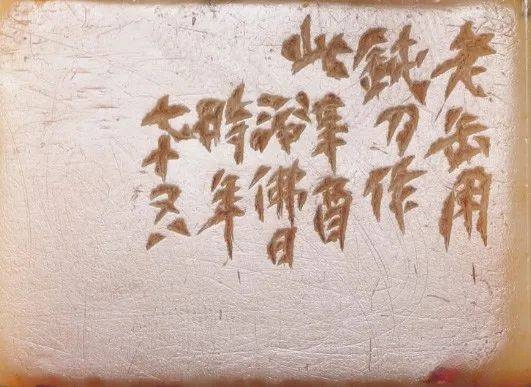 老缶用
鈍刀作
此酉
浴佛日
時年
七十又八